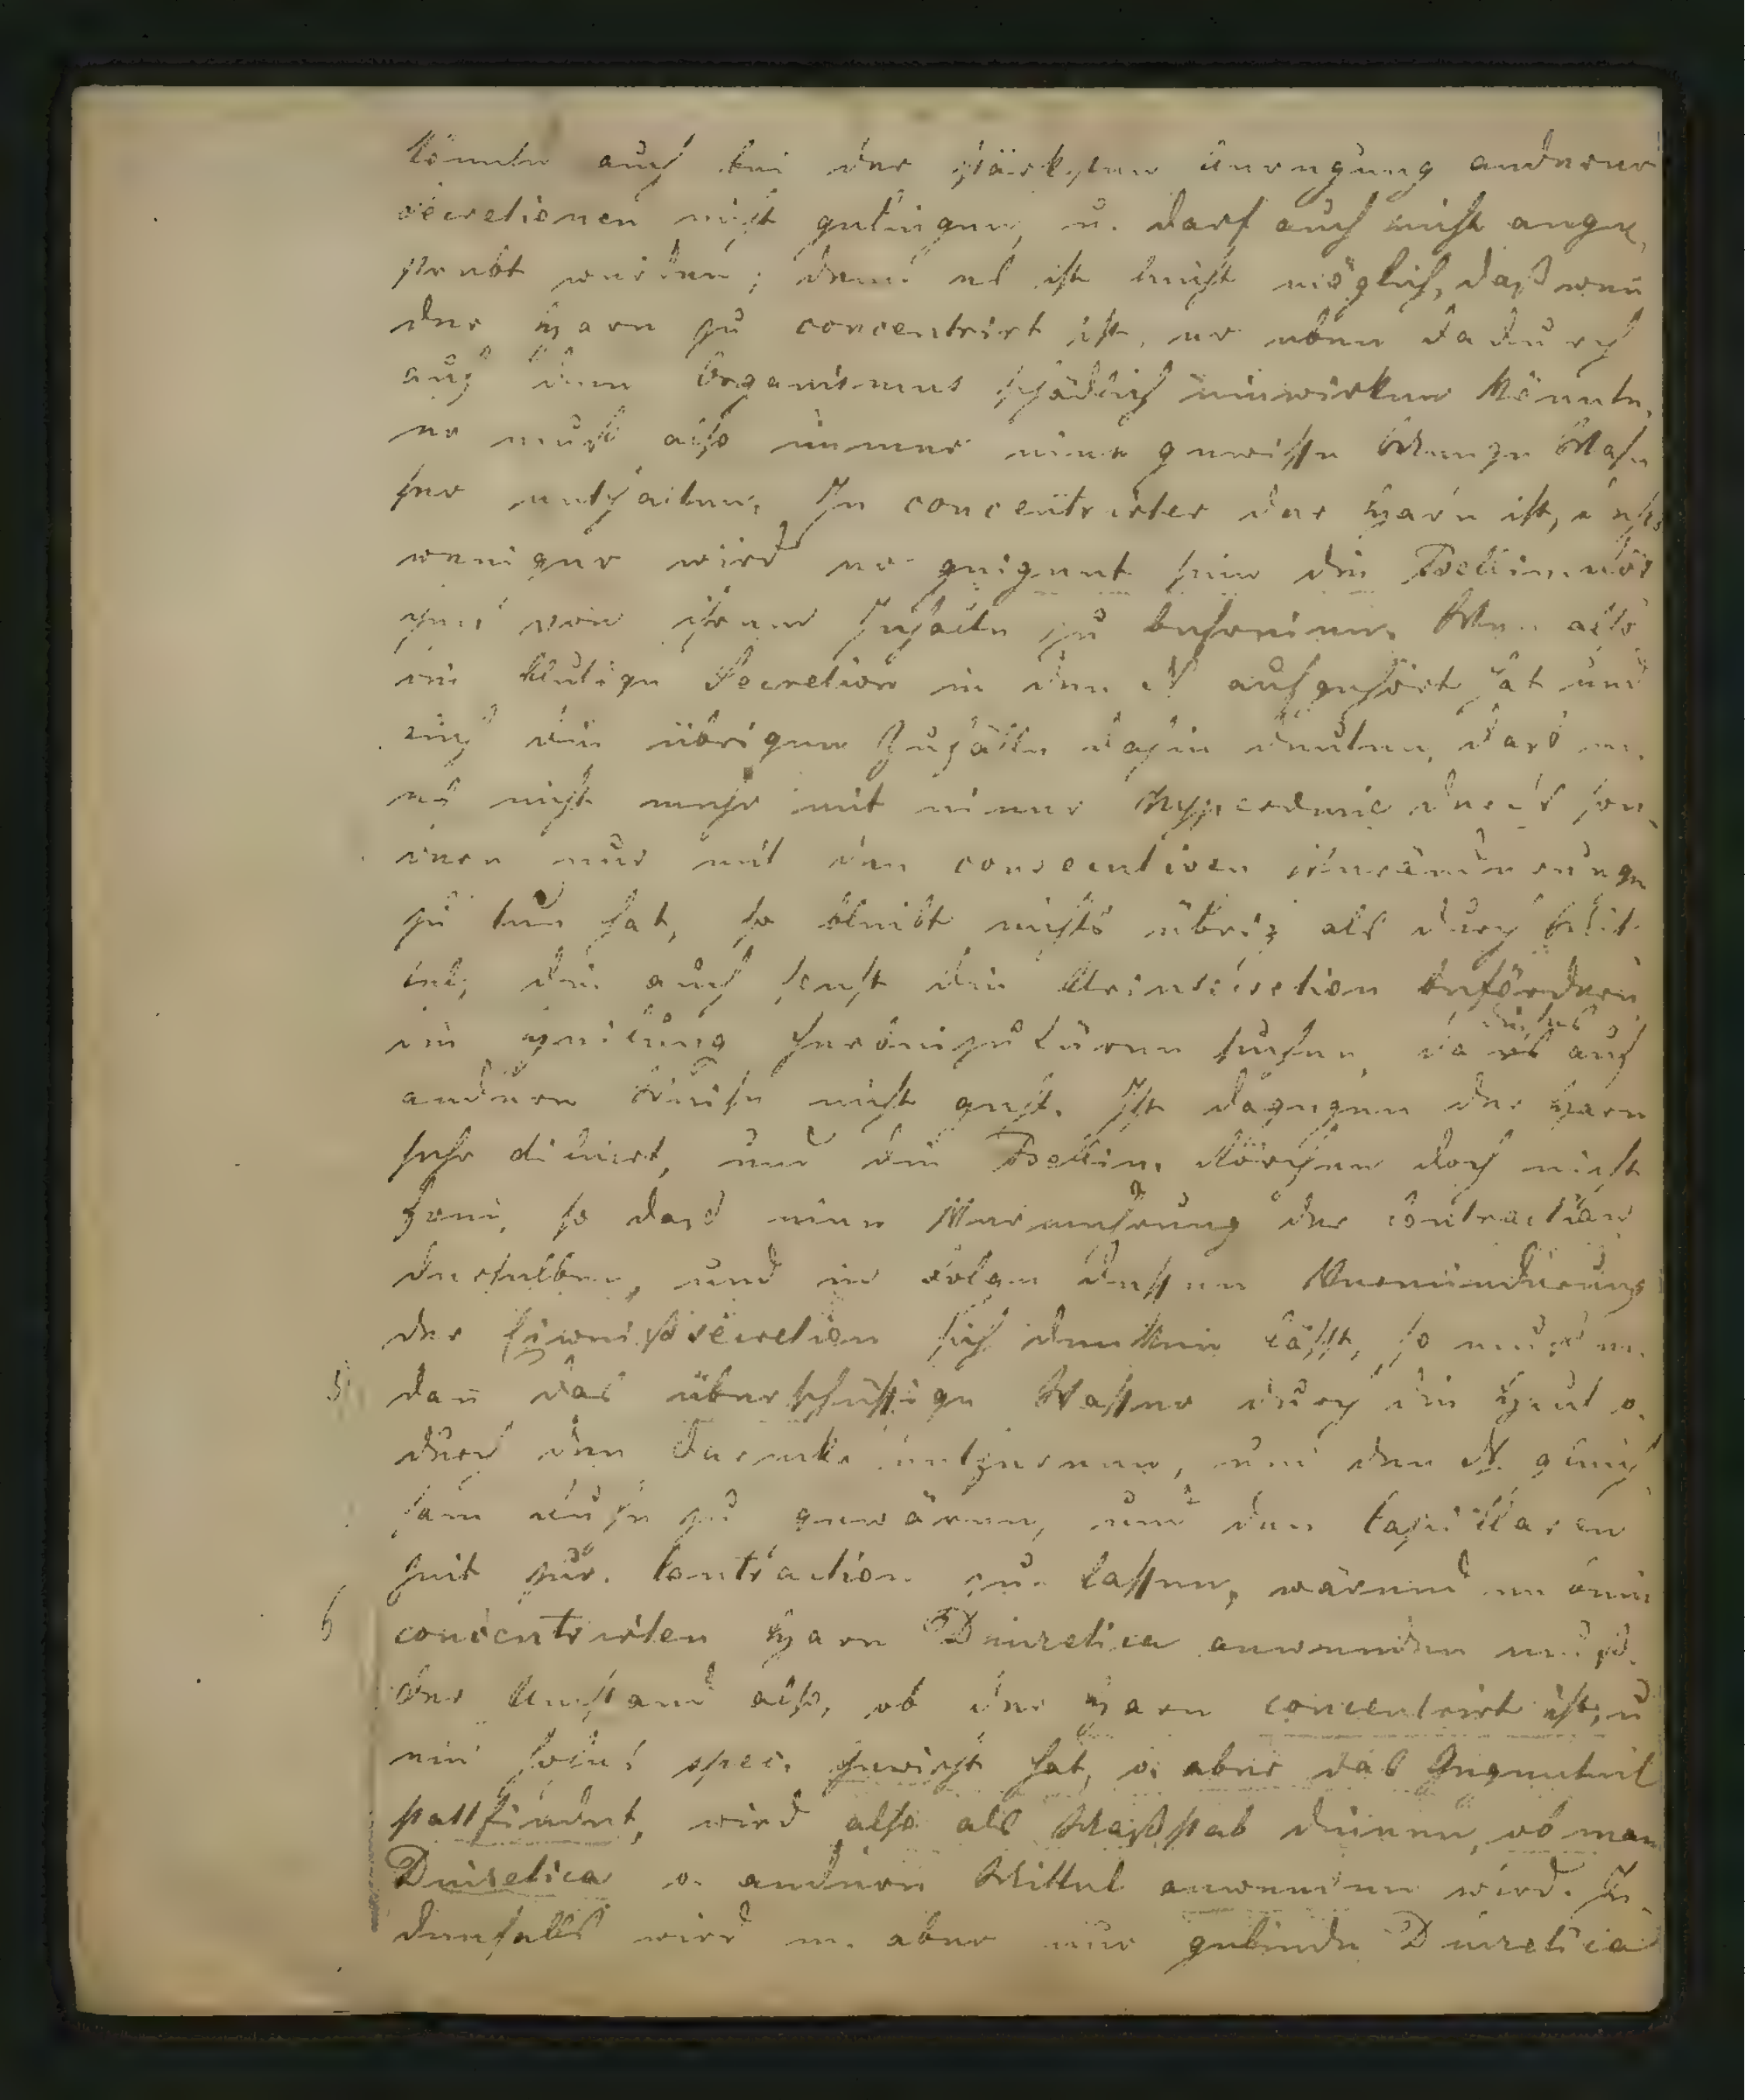 könnte auch bei der stärksten Anregung anderer
Secretionen nicht gelingen, u. darf auch nicht ange-
strebt werden; denn es ist leicht möglich, daß wenn
der Harn zu concentrirt ist, er eben dadurch
auf den Organismus schädlich einwirken könnte,
er muß also immer eine gewisse Menge Was-
ser enthalten. Je concentrirter der Harn ist, desto
weniger wird er geeignet sein die Bellin. Röhr
chen von ihrem Inhalte zu befreien. Wenn also
die blutige Secretion in den N. aufgehört hat und
auch die übrigen Zufälle dahin deuten, dass m.
es nicht mehr mit einer Hyperämie durch son-
dern nur mit den consecutiven Veränderungen
zu tun hat, so bleibt nichts übrig als durch Mit-
tel, die auch sonst die Urinsecretion befördern
die Heilung herbeizuführen suchen, da dieses auf
andere Weise nicht geht. Ist dagegen der Harn
sehr diluirt, und die Bellin. Röhrchen doch nicht
frei, so dass eine Vermehrung der Contraction
derselben, und in Folge dessen Verminderung
der Eiweißsecretion sich denken läßt, so muß m.
5 dan das überschüssige Wasser durch die Haut o.
durch den Darmk. entfernen, um den N. genug
sam Ruhe zu gewären, und den Capillaren
Zeit zur Contraction zu lassen, wärend m. beim
6 concentrirten Harn Diuretica anwenden muß.
Der Umstand also, ob der Harn concentrirt ist, u
ein hohes spec. Gewicht hat, o. aber das Gegenteil
stattfindet, wird also als Maßstab dienen, ob man
Diuretica o. andere Mittel anwenden wird. Je-
denfalls wird m. aber nur gelinde Diuretica